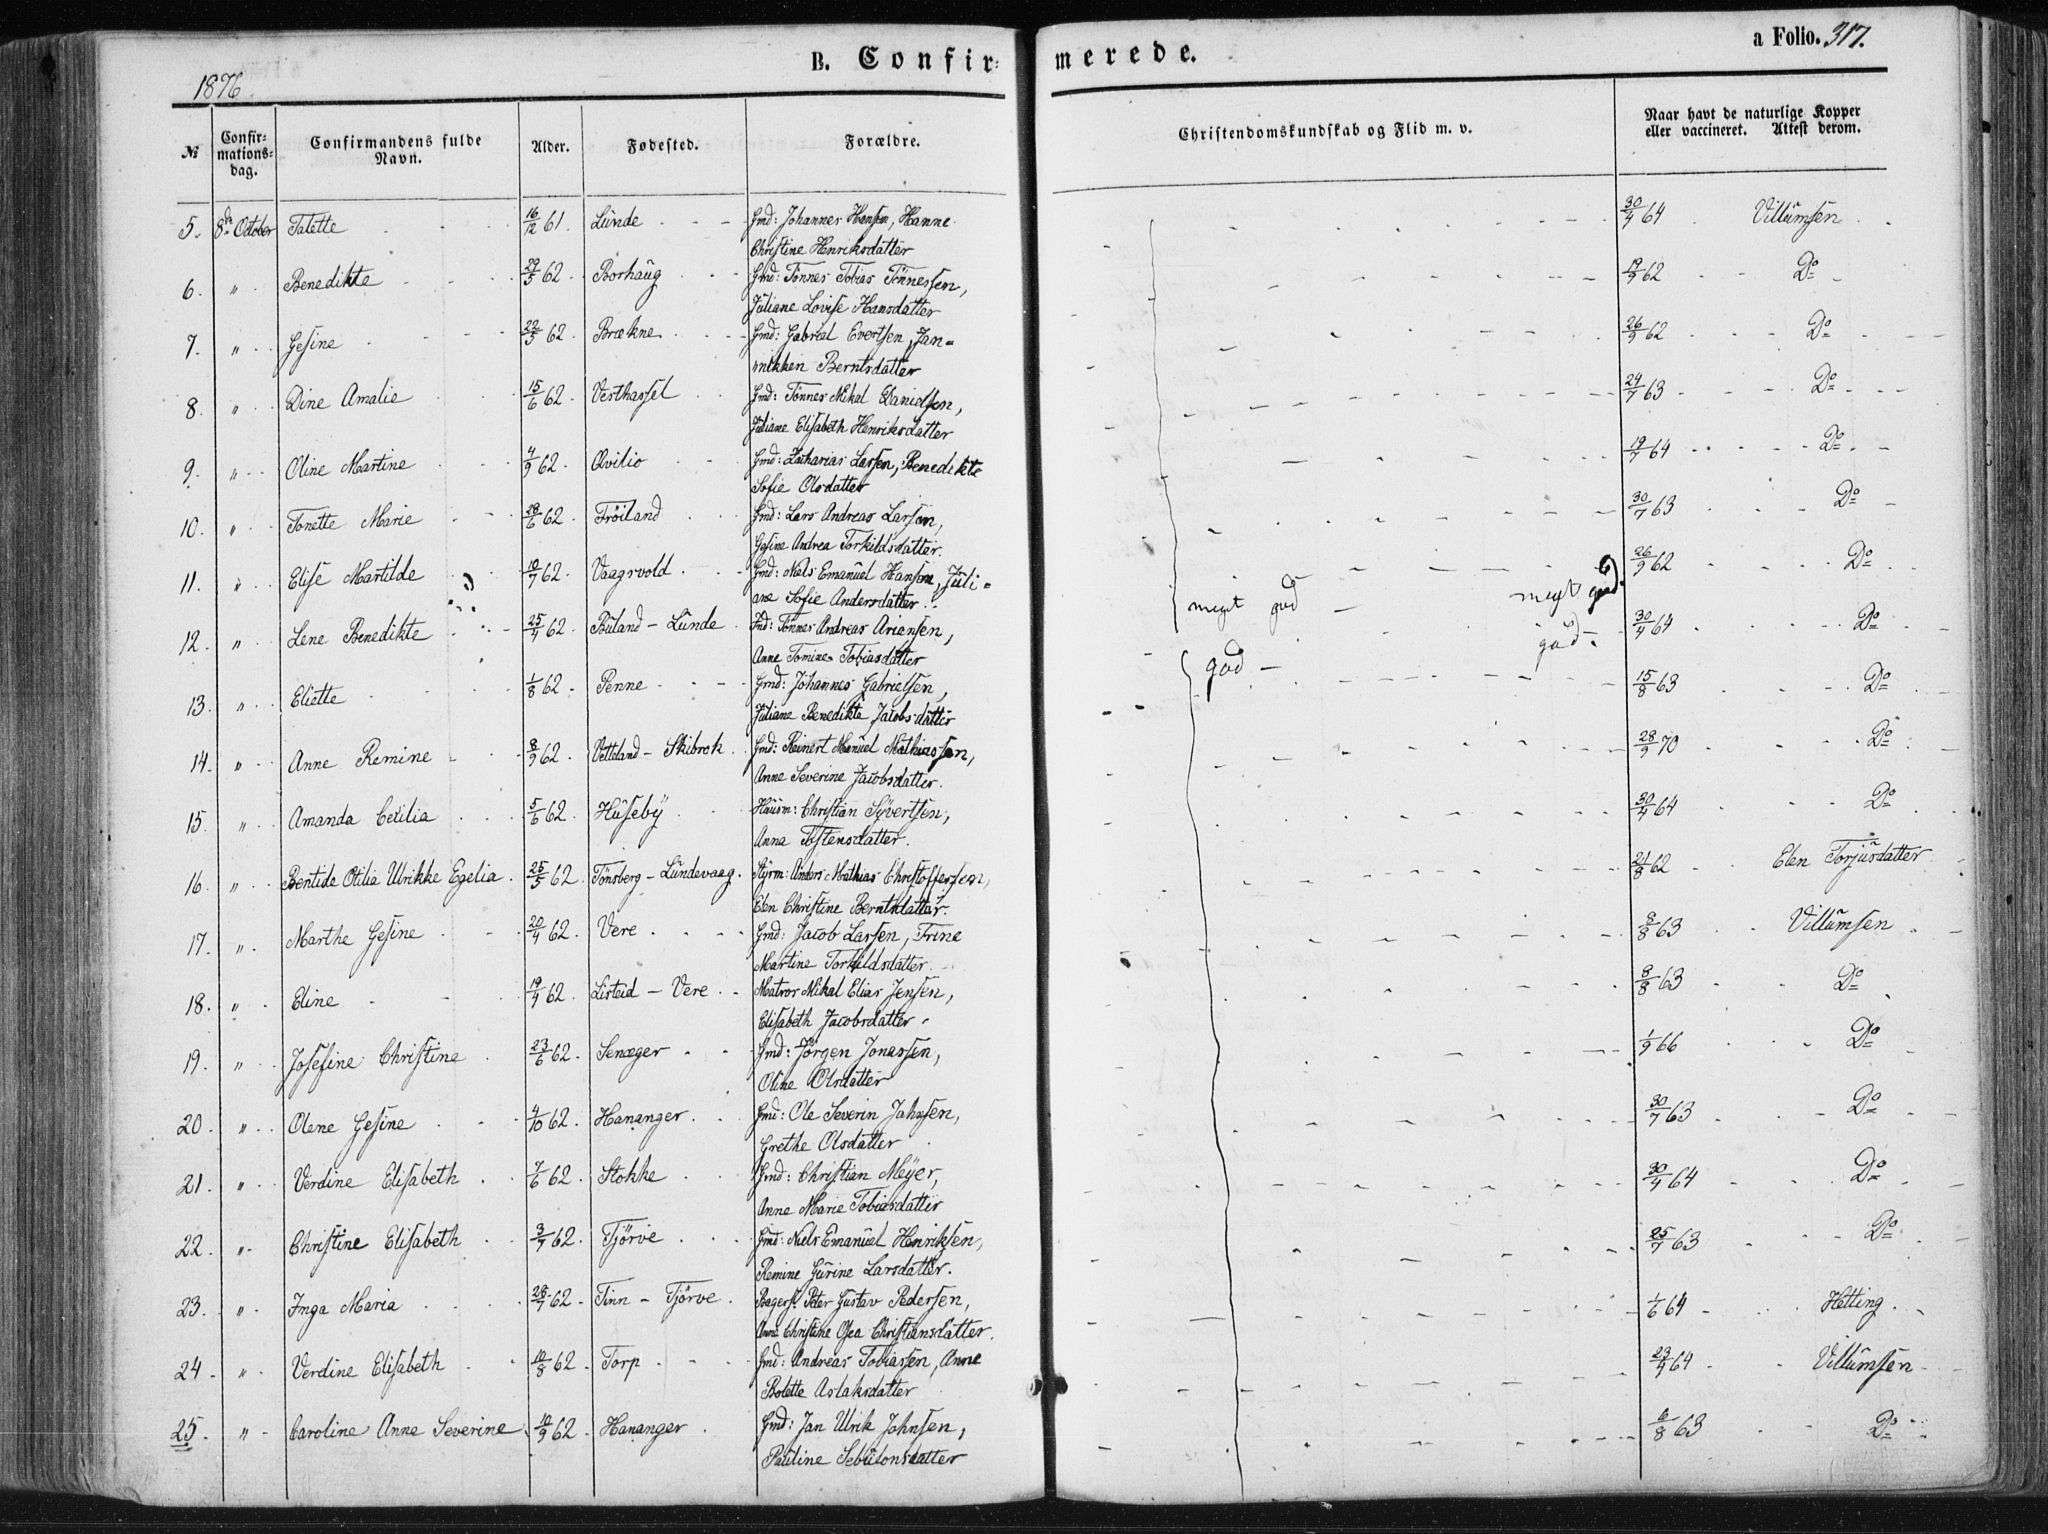 B. Confirmerede.
a Folio. 317.
1876.
№ Confirmations-dag. Confirmandens fulde Navn. Alder. Fødested. Forældre. Christendomskundskab og Flid m. v. Naar havt de naturlige Kopper eller vaccineret. Attest derom.
5. 8de October Talette 16/12 61. Lunde Gmd: Johannes Hansen, Hanne 30/4 64 Villumsen
Christine Henriksdatter
6. " Benedikte 29/5 62. Borhaug Gmd: Tønnes Tobias Tønnessen, 19/9 62 Do
Juliane Lovise Hansdatter
7. " Gesine 22/5 62. Brækne Gmd: Gabriel Evertsen, Jan= 26/9 62 Do
nikken Berntsdatter
8. " Dine Amalie 15/6 62. Vesthassel Gmd: Tønnes Mikal Danielsen, 24/7 63 Do
Juliane Elisabeth Henriksdatter
9. " Oline Martine 4/9 62. Qvilio Gmd: Zacharias Larsen, Benedikte 19/7 64 Do
Sofie Olsdatter
10. " Tonette Marie 28/6 62. Frøiland Gmd: Lars Andreas Larsen, 30/7 63 Do
Gesine Andrea Torkildsdatter.
11. " Elise Martilde 10/7 62. Vaagsvold Gmd: Niels Emanuel Hansen, Juli= meget god – meget god. 26/9 62 Do
ane Sofie Andersdatter.
12. " Lene Benedikte 25/4 62. Buland – Lunde Ind: Tønnes Andreas Ariensen, god – god. 30/4 64 Do
Anne Tomine Tobiasdatter
13. " Eliette 1/8 62. Penne Gmd: Johannes Gabrielsen, 15/8 63 Do
Juliane Benedikte Jacobsdatter
14. " Anne Remine 8/9 62. Vetteland – Skibrok Gmd: Reinert Manuel Mathiassen, 28/9 70 Do
Anne Severine Jacobsdatter.
15. " Amanda Cecilia 5/6 62. Huseby Huusm: Christian Syvertsen, 30/4 64 Do
Anna Tostensdatter.
16. " Bentide Otilia Ulrikke Egelia. 25/5 62. Tønsberg – Lundevaag. Styrm: Anders Mathias Christoffersen, 21/8 62 Elen Torjusdatter
Elen Christine Berntsdatter.
17. " Marthe Gesine 20/4 62. Vere Gmd: Jacob Larsen, Trine 8/8 63 Villumsen
Martine Torkildsdatter.
18. " Eline 19/4 62. Listeid – Vere Matros Mikal Elias Jensen, 8/8 63 Do
Elisabeth Jacobsdatter.
19. " Josefine Christine 23/6 62. Senæger Gmd: Jørgen Jonassen, 1/9 66 Do
Oline Olsdatter
20. " Olene Gesine 4/10 62. Hananger Gmd: Ole Severin Jahnsen, 30/7 63 Do
Grethe Olsdatter
21. " Verdine Elisabeth 7/6 62. Stokke Gmd: Christian Meyer, 30/4 64 Do
Anne Marie Tobiasdatter
22. " Christine Elisabeth 3/7 62. Tjørve Gmd: Niels Emanuel Henriksen, 25/7 63 Do
Remine Gurine Larsdatter.
23. " Inga Maria 28/7 62. Tinn – Tjørve. Bagersv. Peter Gustav Pedersen, 1/6 64 Hetting
Anne Christine Osea Christiansdatter.
24. " Verdine Elisabeth 10/8 62. Torp Gmd: Andreas Tobiassen, Anne 23/4 64 Villumsen
Bolette Aslaksdatter
25. " Caroline Anne Severine 10/9 62. Hananger Gmd: Jan Ulrik Johnsen, 6/8 63 Do
Pauline Sebulonsdatter